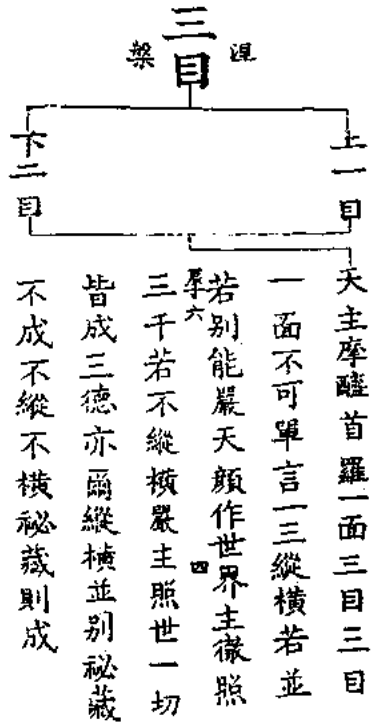 三目
涅槃
上一目
下二目
天主摩醯首羅一面三目三目
一面不可單言一三縱橫若並
若別能嚴天顏作世界主徹照
三千若不縱橫嚴主照世一切
皆成三德亦爾縱橫並別祕藏
不成不縱不橫祕藏則成
四